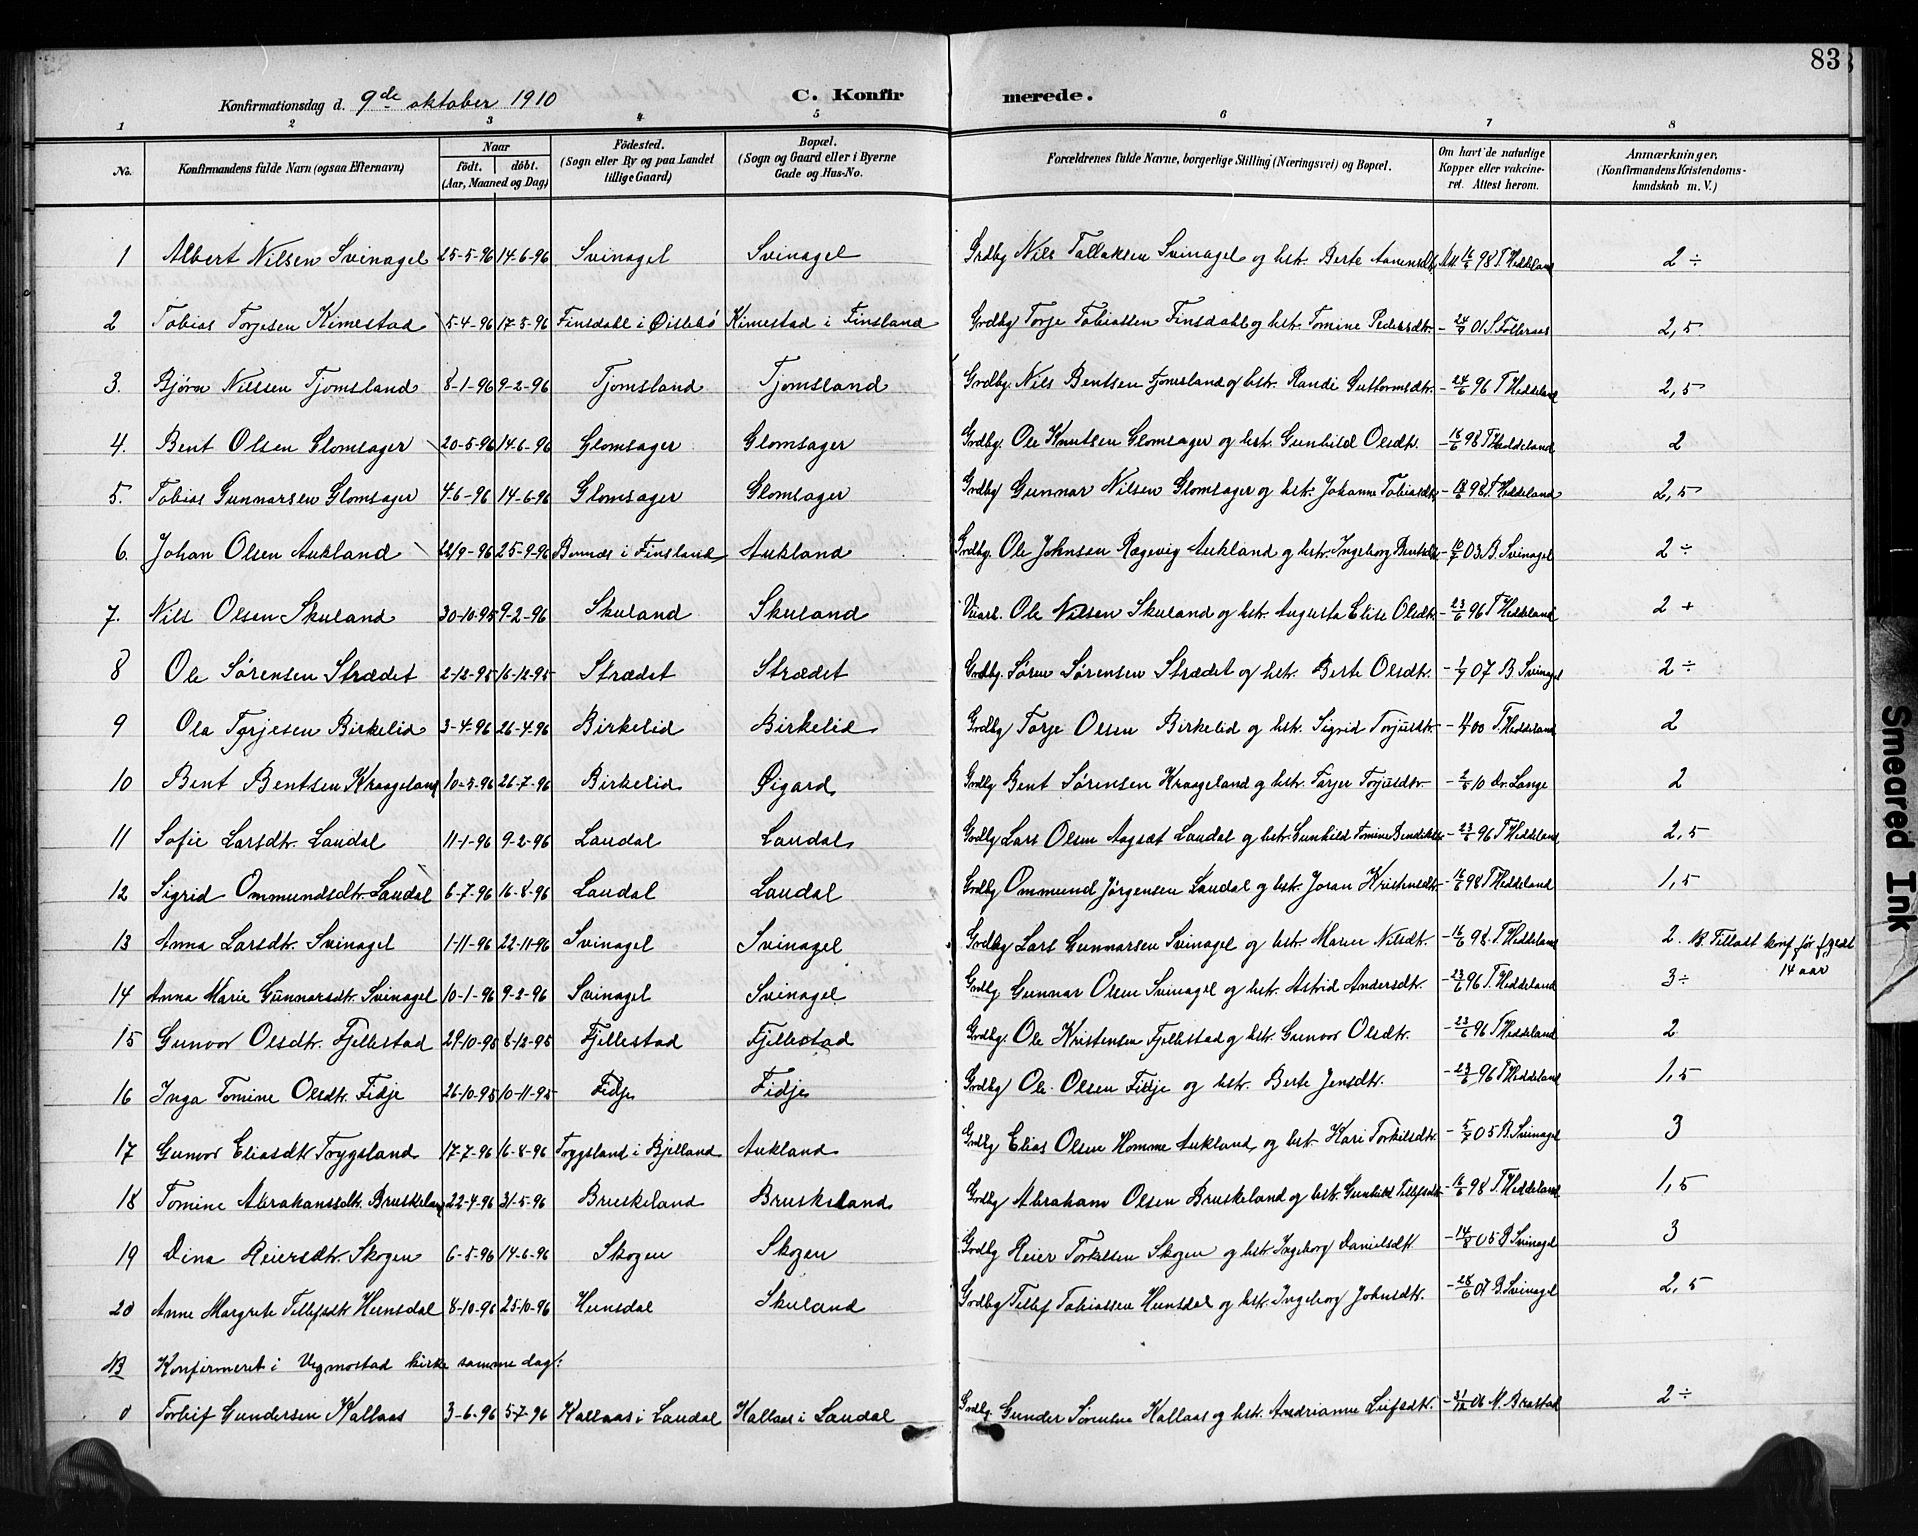 83
Konfirmationsdag d. 9de oktober 1910 C. Konfirmerede.
1 2 3 4 5 6 7 8
No. Konfirmandens fulde Navn (ogsaa Efternavn) Naar født. døbt. (Aar, Maaned og Dag) Fødested. (Sogn eller By og paa Landet tillige Gaard) Bopæl. (Sogn og Gaard eller i Byerne Gade og Hus-No. Forældrenes fulde Navne, borgerlige Stilling (Næringsvei) og Bopæl. Om havt de naturlige Kopper eller vakcineret. Attest herom. Anmærkninger. (Konfirmandens Kristendomskundskab m. V.)
1 Albert Nilsen Svinagel 25-5-96 14-6-96 Svinagel Svinagel Grdbg Nils Tallaksen Svinagel og hstr. Berte Aanensdt. 16/6 98 T. Heddeland 2 ÷
2 Tobias Torjesen Kimestad 5-4-96 17-5-96 Finsdahl i Øislebø Kimestad i Finsland Grdbg Torje Tobiassen Finsdahl og hstr. Tomine Pedersdtr. - 24/9 01 S. Folleraas 2,5
3. Bjørn Nilssen Tjomsland 8-1-96 9-2-96 Tjomsland Tjomsland Grdbg. Nils Bentsen Tjomsland og hstr. Randi Guttormsdtr. - 24/6 96 T Heddeland 2,5
4. Bent Olsen Glomsager 20-5-96 14-6-96 Glomsager Glomsager Grdbg. Ole Knutsen Glomsager og hstr. Gunhild Olsdtr. - 16/6 98 T. Heddeland 2
5. Tobias Gunnarsen Glomsager 4-6-96 14-6-96 Glomsager Glomsager Grdbg Gunnar Nilsen Glomsager og hstr. Johanne Tobiasdtr - 16/6 98 T. Heddeland 2,5
6. Johan Olsen Aukland 22/9-96 25-9-96 i Finsland Aukland Grdbg. Ole Johnsen Røgevig Aukland og hstr. Ingeborg Bentsdtr - 10/7 03 B. Svinagel 2 ÷
7. Nils Olsen Skuland 30-10-95 9-2-96 Skuland Skuland Ole Nilsen Skuland og hstr. Augusta Elise Olsdtr. - 23/6 96 T Heddeland 2 +
8 Ole Sørensen Strædet 2-12-95 16-12-95 Strædet Strædet Grdbg. Søren Sørensen Strædet og hstr. Berte Olsdtr. - 1/7 07 B. Svinagel 2 ÷
9 Ola Torjesen Birkelid 3-4-96 26-4-96 Birkelid Birkelid Grdbg Torje Olsen Birkelid og hstr. Sigrid Torjusdtr. - 00 T. Heddeland 2
10 Bent Bentsen Kraageland 10-3-96 26-7-96 Birkelid Øigard Grdbg Bent Sørensen Kraageland og hstr. Torjer Torjusdtr - 2/6 10 Dr. Lange 2
11 Sofie Larsdtr. Laudal 11-1-96 9-2-96 Laudal Laudal Grdbg Lars Olsen Aagsæt Laudal og hstr. Gunhild Tomine - 23/6 96 T Heddeland 2,5
12 Sigrid Ommundsdtr. Laudal 6-7-96 16-8-96 Laudal Laudal Grdbg Ommund Jørgensen Laudal og hstr. Joran Kristensdtr - 16/6 98 T Heddeland 1,5
13 Anna Larsdtr. Svinagel 1-11-96 22-11-96 Svinagel Svinagel Grdbg Lars Gunnarsen Svinagel og hstr. Maren Nilsdtr. - 16/6 98. T. Heddeland 2. NB. Tillatt konf før fyldt 14 aar
14 Anna Marie Gunnarsdtr. Svinagel 10-1-96 9-2-96 Svinagel Svinagel Grdbg Gunnar Olsen Svinagel og hstr. Astrid Andersdtr. - 23/6 96 T. Heddeland 3 ÷
15 Gunvor Olsdtr. Fjellestad 29-10-95 8-12-95 Fjellestad Fjellestad Grdbg. Ole Kristensen Fjellestad og hstr. Gunvor Olsdtr. - 23/6 96 T Heddeland 2
16 Inga Tomine Olsdtr. Fidje 26-10-95 10-11-95 Fidje Fidje Grdbg Ole Olsen Fidje og hstr. Berte Jensdtr. - 23/6 96 T Heddeland 1,5
17 Gunvor Eliasdtr Trygsland 17-7-96 16-8-96 Trygsland i Bjelland Aukland Grdbg Elias Olsen Homme Aukland og hstr. Kari Torkilsdtr - 5/7 05 B. Svinagel 3
18 Tomine Abrahamsdtr. Bruskeland 22-4-96 31-5-96 Bruskeland Bruskeland Grdbg Abraham Olsen Bruskeland og hstr. Gunhild Tellefsdtr - 16/6 98 T. Heddeland 1,5
19 Dina Reiersdtr. Skogen 6-5-96 14-6-96 Skogen Skogen Grdbg Reier Torkelsen Skogen og hstr Ingeborg Danielsdtr. - 14/8 05 B Svinagel 3
20 Anne Margrete Tellefsdtr Hunsdal 8-10-96 25-10-96 Hunsdal Skuland Grdbg Tellef Tobiassen Hunsdal og hstr. Ingeborg Johnsdtr. - 28/6 07 B. Svinagel 2,5
NB Konfirmeret i Vigmostad kirke samme dag:
0 Torleif Gundersen Kallaas 3-6-96 5-7-96 Kallaas i Laudal Kallaas i Laudal Grdbg. Gunder Kallaas og hstr. Andrianne Leifsdtr. - 31/12 06 N. Brastad 2 ÷
Smeared Ink